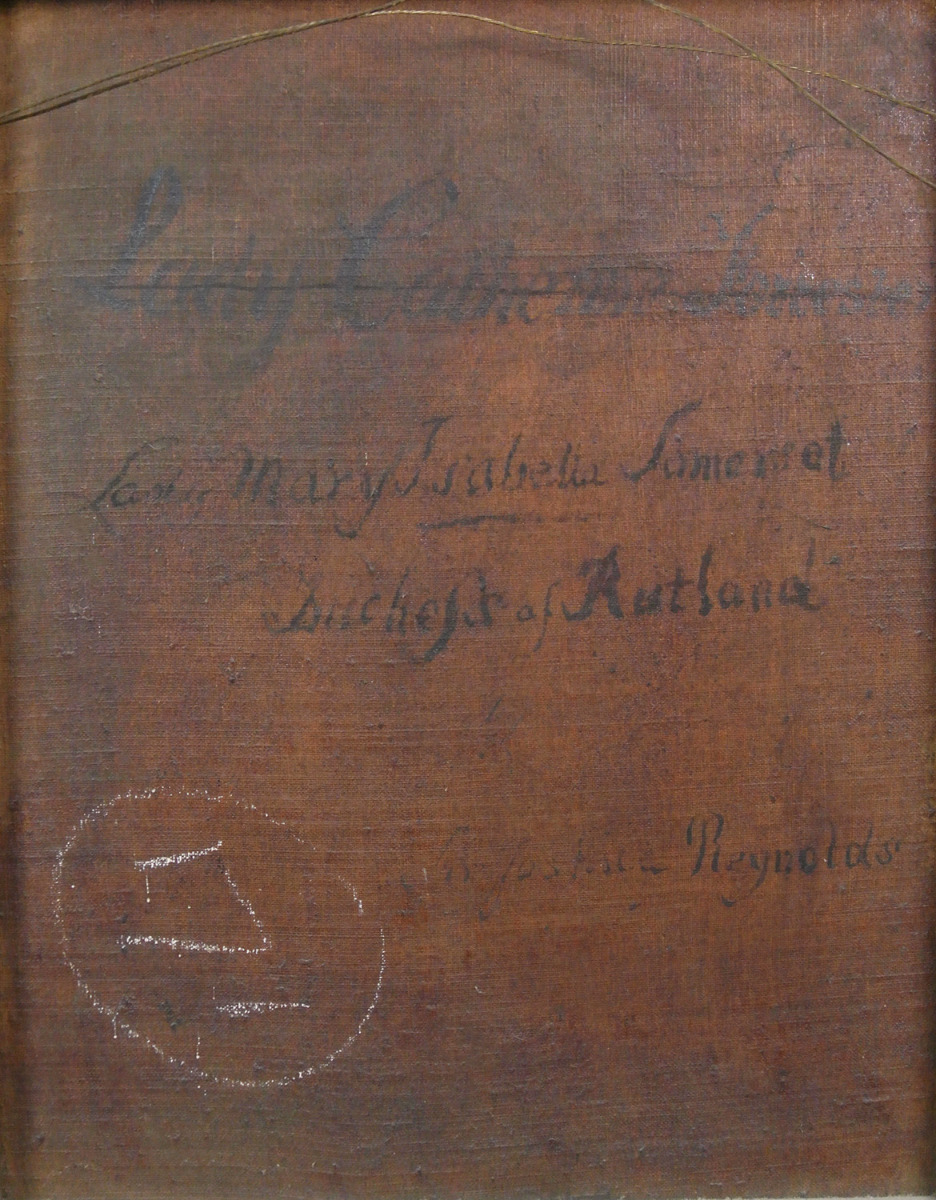 Lady Catherine
Lady Mary Isabella Somerset
Duchess of Rutland
Sir Joshua Reynolds